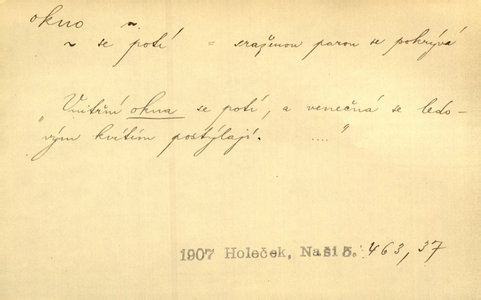 okno ~
~ se potí = sraženou parou se pokrývá
„Vnitřní okna se potí, a venečná se ledo-
vým kvítím postýlají. ...."
1907 Holeček, Naši 5. 463, 37